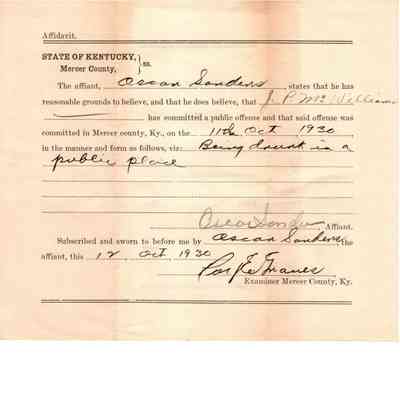 Affidavit.
STATE OF KENTUCKY, } ss.
Mercer County,
The affiant, Oscar Sanders, states that he has
reasonable grounds to believe, and that he does believe, that J. P. McWilliams
has committed a public offense and that said offense was
committed in Mercer county, Ky., on the 11th Oct 1930,
in the manner and form as follows, viz: Being drunk in a
public place
Oscar Sanders, Affiant.
Subscribed and sworn to before me by Oscar Sanders, the
affiant, this 12 Oct, 1930
Examiner Mercer County, Ky.